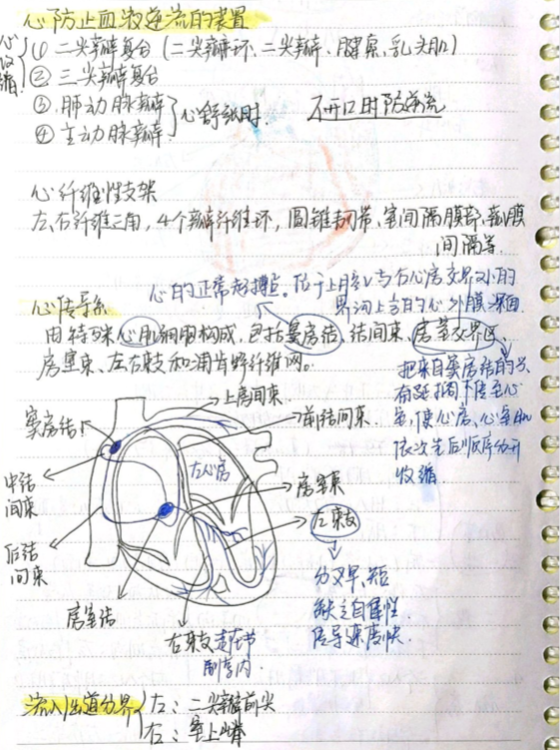 心防止血液逆流的装置
心收缩
① 二尖瓣复合(二尖瓣环、二尖瓣、腱索、乳头肌)
② 三尖瓣复合
③ 肺动脉瓣
④ 主动脉瓣
心舒张时.
不开口时防逆流
心纤维性支架
左、右纤维三角, 4个瓣纤维环, 圆锥韧带, 室间隔膜部, 瓣膜
间隔等.
心的正常起搏点. 位于上腔V与右心房交界处的
界沟上方的心外膜深面
心传导系
由特殊心肌细胞构成, 包括窦房结, 结间束, 房室交界区,
房室束、左右束支和浦肯野纤维网。
把来自窦房结的兴
奋延搁下传至心
室, 使心房、心室肌
依次先后顺序分开
收缩
上房间束.
窦房结
前结间束.
左心房
中结
间束
房室束
左束支
后结
间束
分叉早、短
缺乏自律性.
传导速度快.
房室结
右束支走在节
制索内.
流入出道分界
左: 二尖瓣前尖
右: 室上嵴